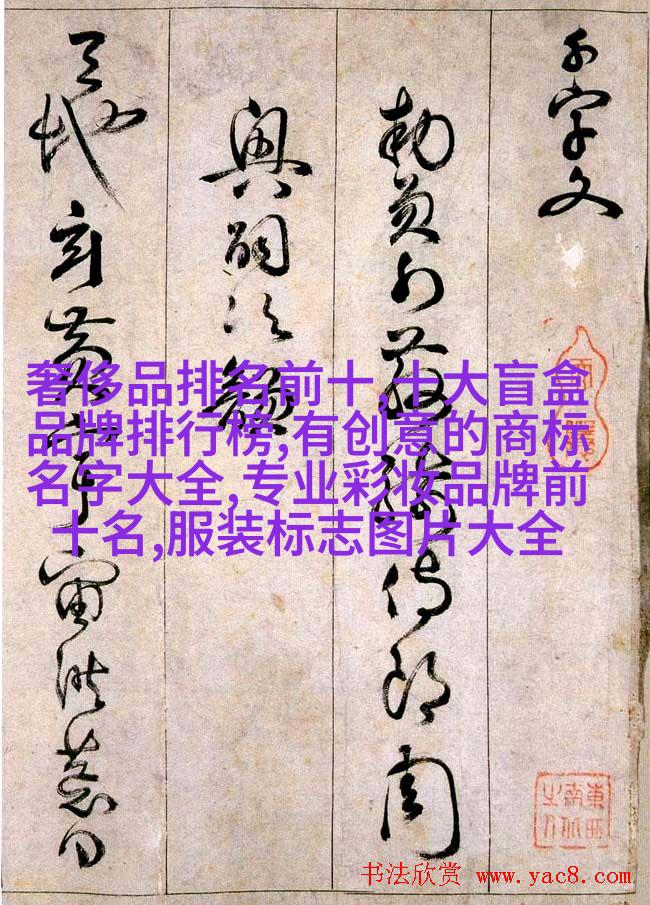 千字文
勅員外散騎侍郎周
興嗣次韻
天地玄黃宇宙洪荒日
奢侈品排名前十,十大盲盒
品牌排行榜,有创意的商标
名字大全,专业彩妆品牌前
十名,服装标志图片大全
東西
南北
之人
书法欣赏 www.yac8.com